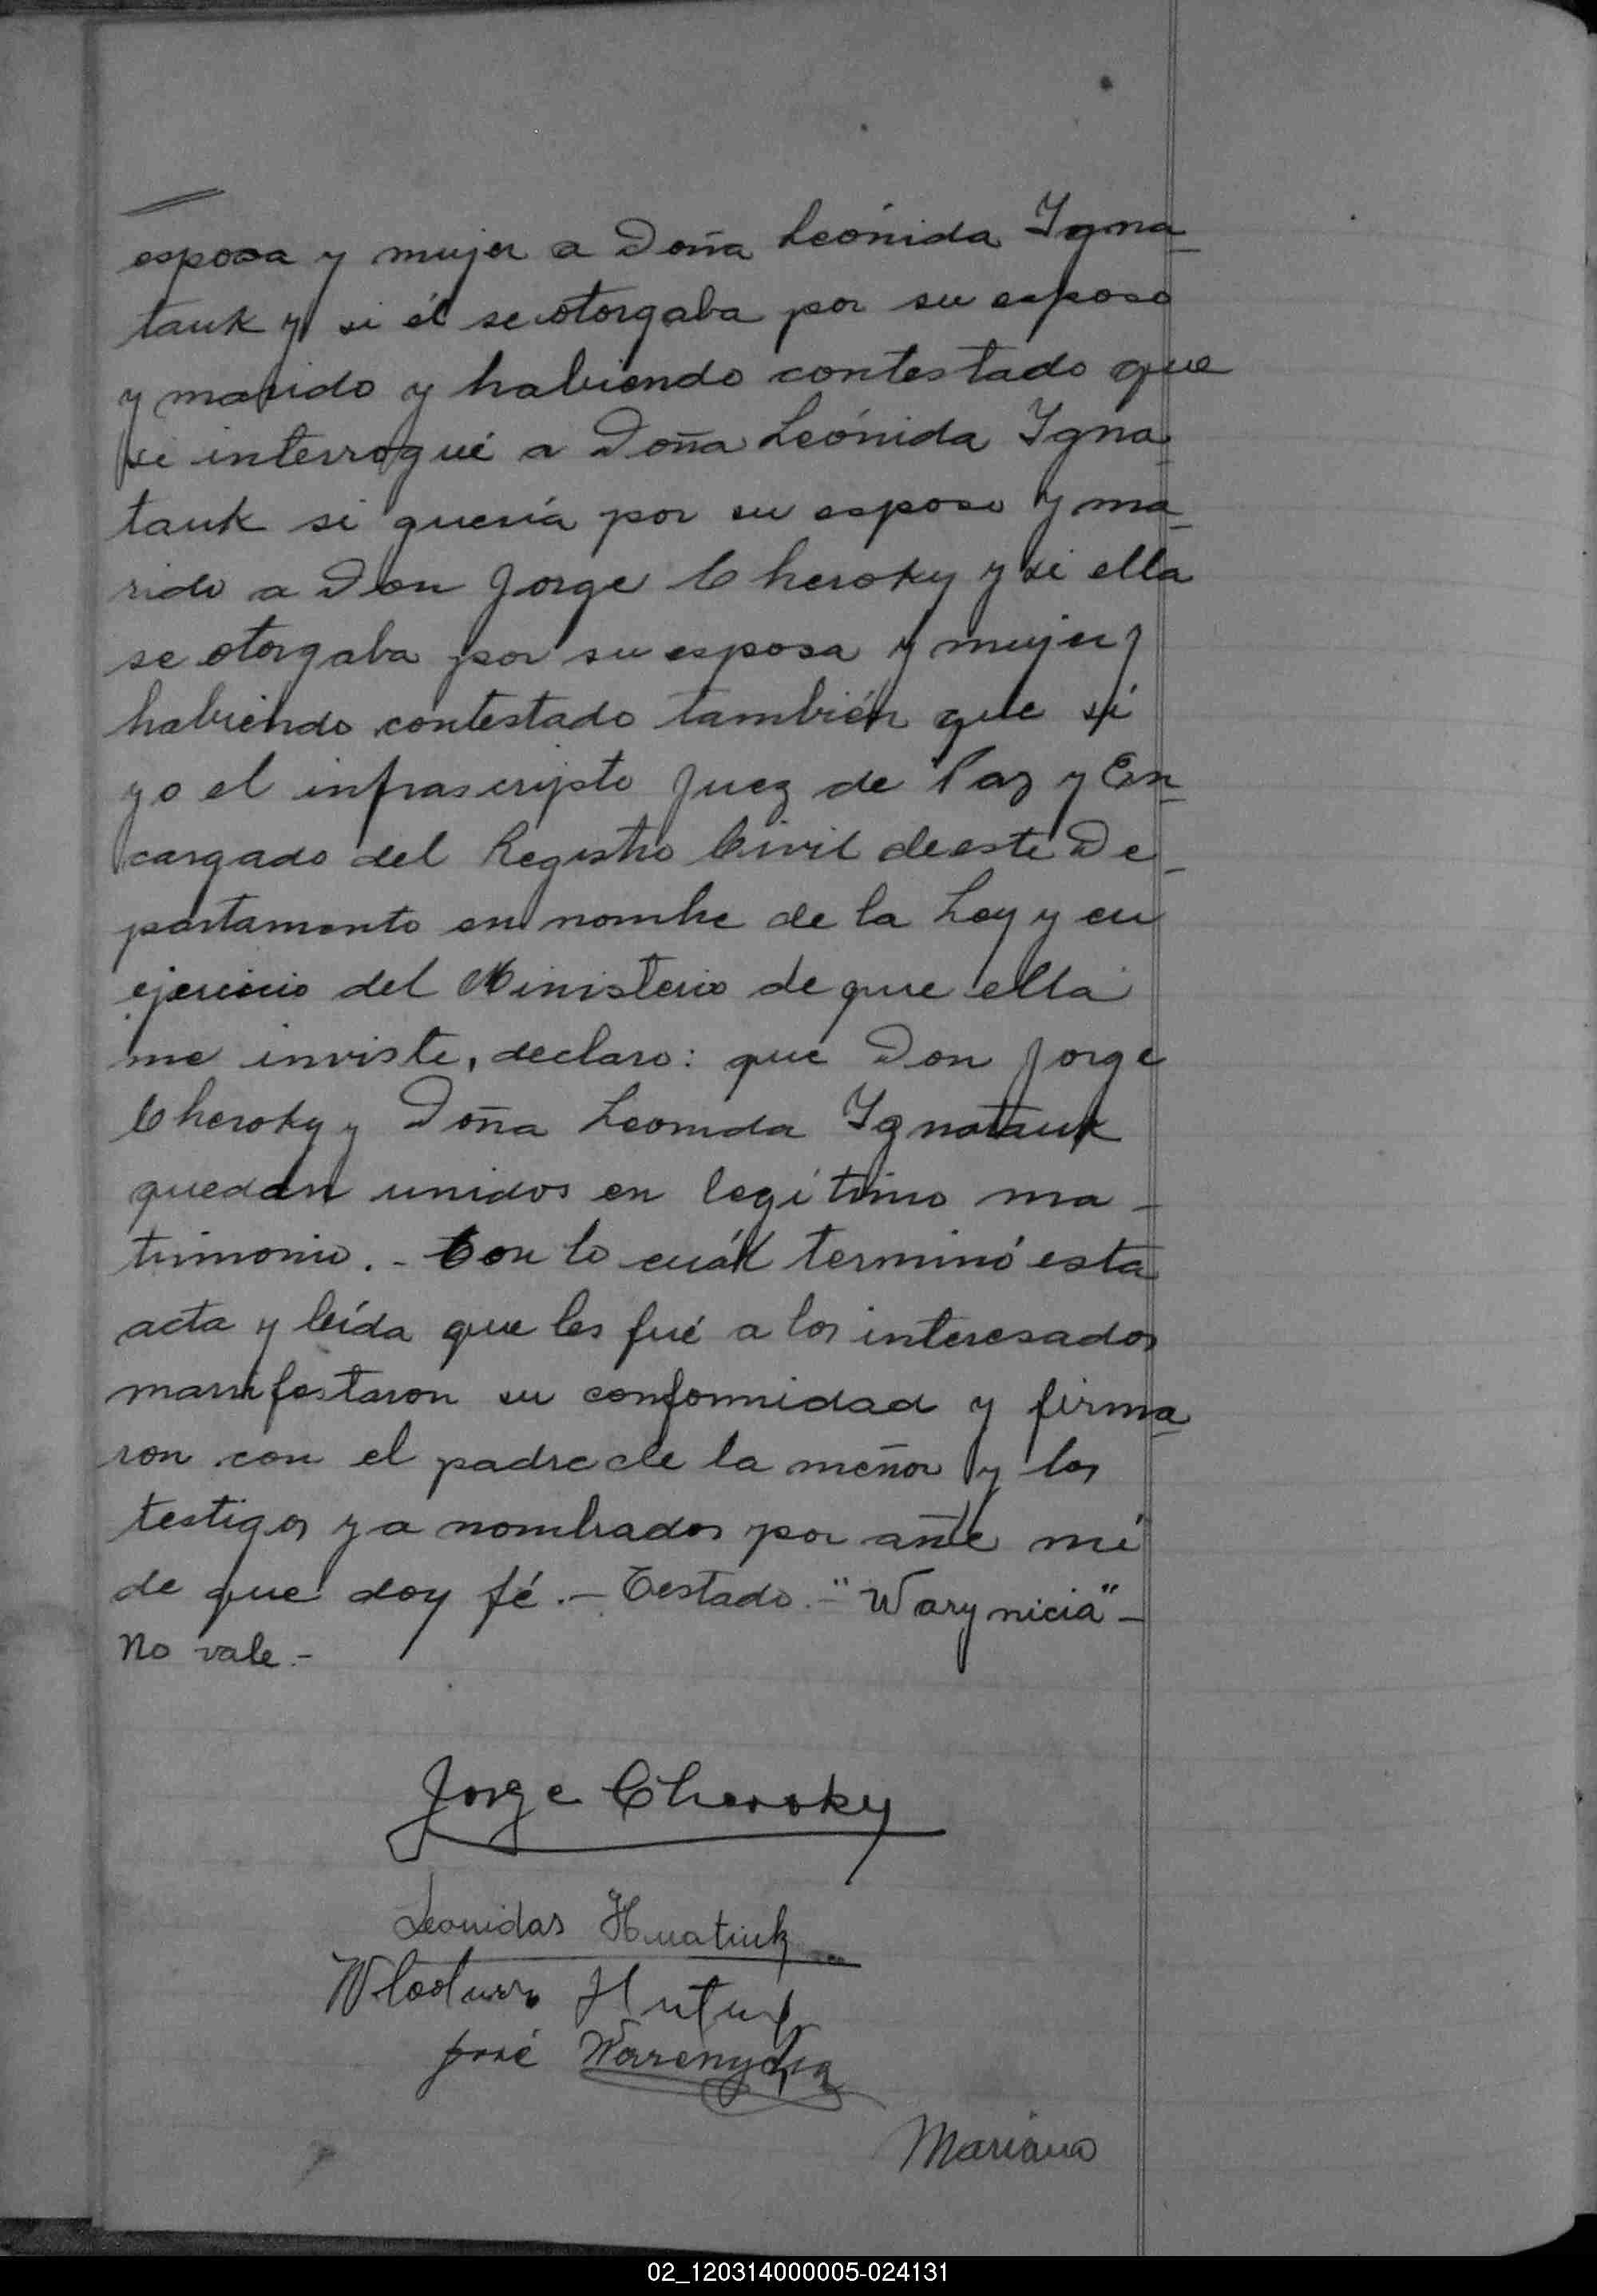 esposa y mujer a Doña Leónida Igna-
tauk y si él se otorgaba por su esposo
y marido y habiendo contestado que
si interrogué a Doña Leónida Igna-
tauk si quería por su esposo y ma-
rido a Don Jorge Cheroky y si ella
se otorgaba por su esposa y mujer y
habiendo contestado también que sí
yo el infrascripto Juez de Paz y En-
cargado del Registro Civil de este De-
partamento en nombre de la Ley y en
ejercicio del Ministerio de que ella
me inviste, declaro: que Don Jorge
Cheroky y Doña Leonida Ignatauk
quedan unidos en legítimo ma-
trimonio.- Con lo cuál terminó esta
acta y leída que les fué a los interesados
manifestaron su conformidad y firma-
ron con el padre de la menor y los
testigos ya nombrados por ante mí
de que doy fé.- Testado.- "Warynicia" -
No vale.-
Jorge Cheroky
Leonidas Hnatiuk
José
Mariano
02_120314000005-024131